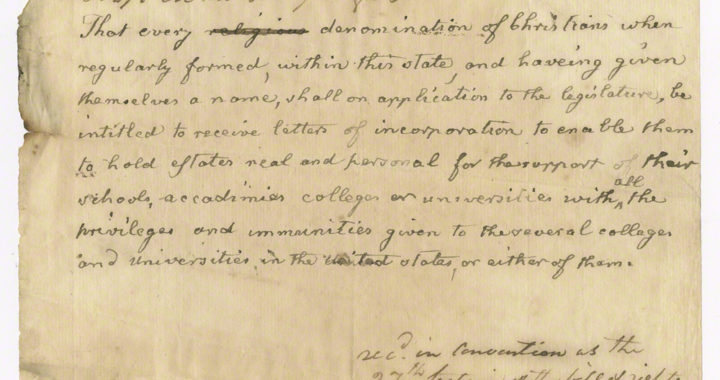 That every religious denomination of Christians when
regularly formed, within this state, and haveing given
themselves a name, shall on application to the legislature, be
intitled to receive letters of incorporation to enable them
to hold estates real and personal for the support of their
schools, accadimies colleges or universities with all the
privileges and immunities given to the several colleges
and universities in the united states, or either of them.
recd. in Convention as the
27th